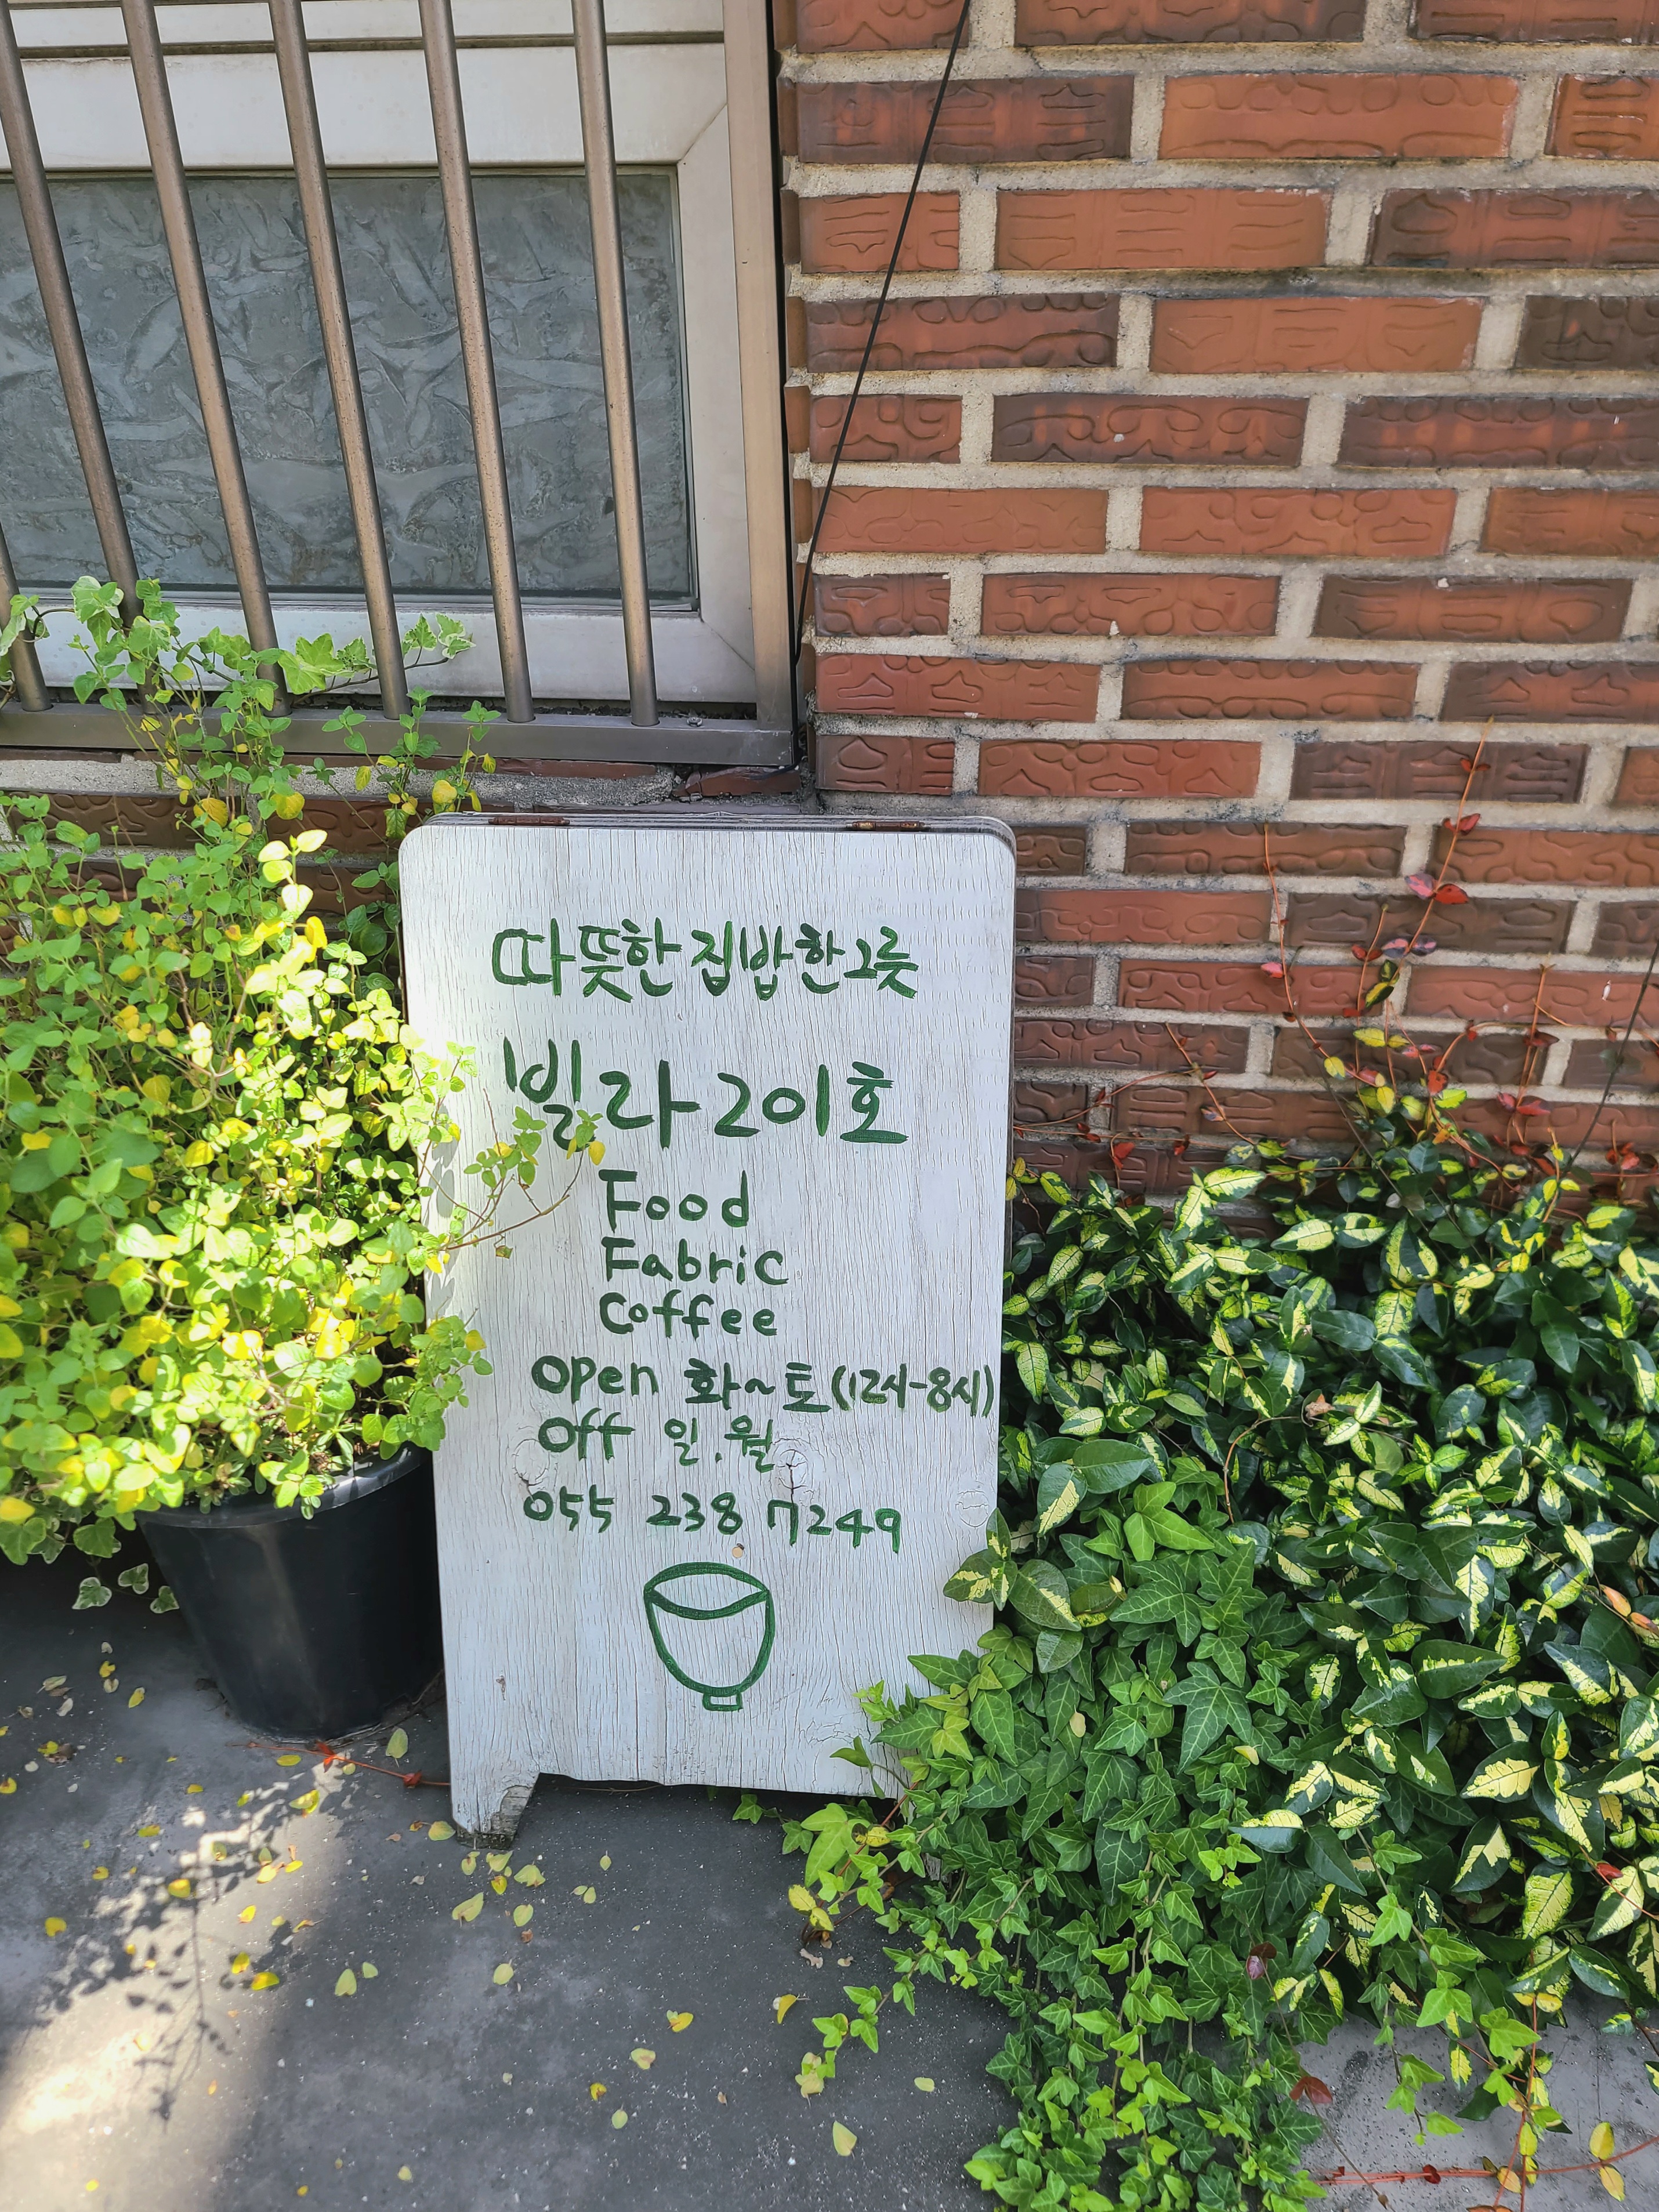 따뜻한 집밥 한 그릇
빌라 201호
Food
Fabric
Coffee
Open 화~토(12시-8시)
Off 일.월
055 238 7249